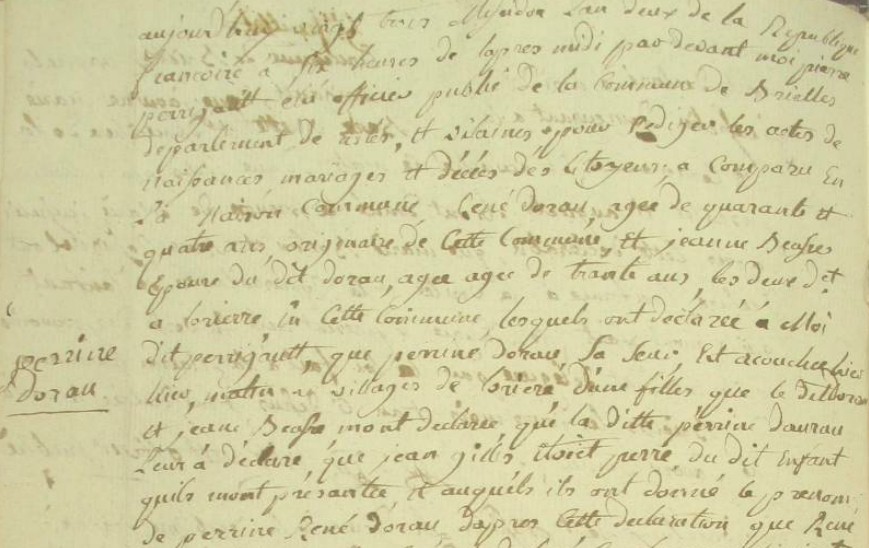 aujourdhuy vingt trois Messidor Lan deux de la Republique
francoise a six heures de lapres midi par devant moi pierre
perrigault elu officier publié de la Commune de Brielles
departement de isles, et vilaines, pour Rediger les actes de
naissances mariages et décées dés Citoyens a Comparu En
La Maison Commune René dorau, ageé de quarante et
quatre ans originaire de Cette Commune, Et jeanne Beasses
Epouse du dit dorau, agee agee de trante ans, les deux dt
a lorierre En Cette Commune, lesquels ont declareé a Moi
dit perrigault, que perrine dorau, Sa seur Est acouchee hier
hier, matin villages de loriere d'une filles que le dit dorau
perrine
dorau
et jeane Beasse mont declaree que la ditte perrine daurau
Leur à déclaré, que jean gilles étoiet perre du dit Enfant
quils mont présantée, et auquéls ils ont donné le prenom
de perrine René dorau dapres Cette declaration que René